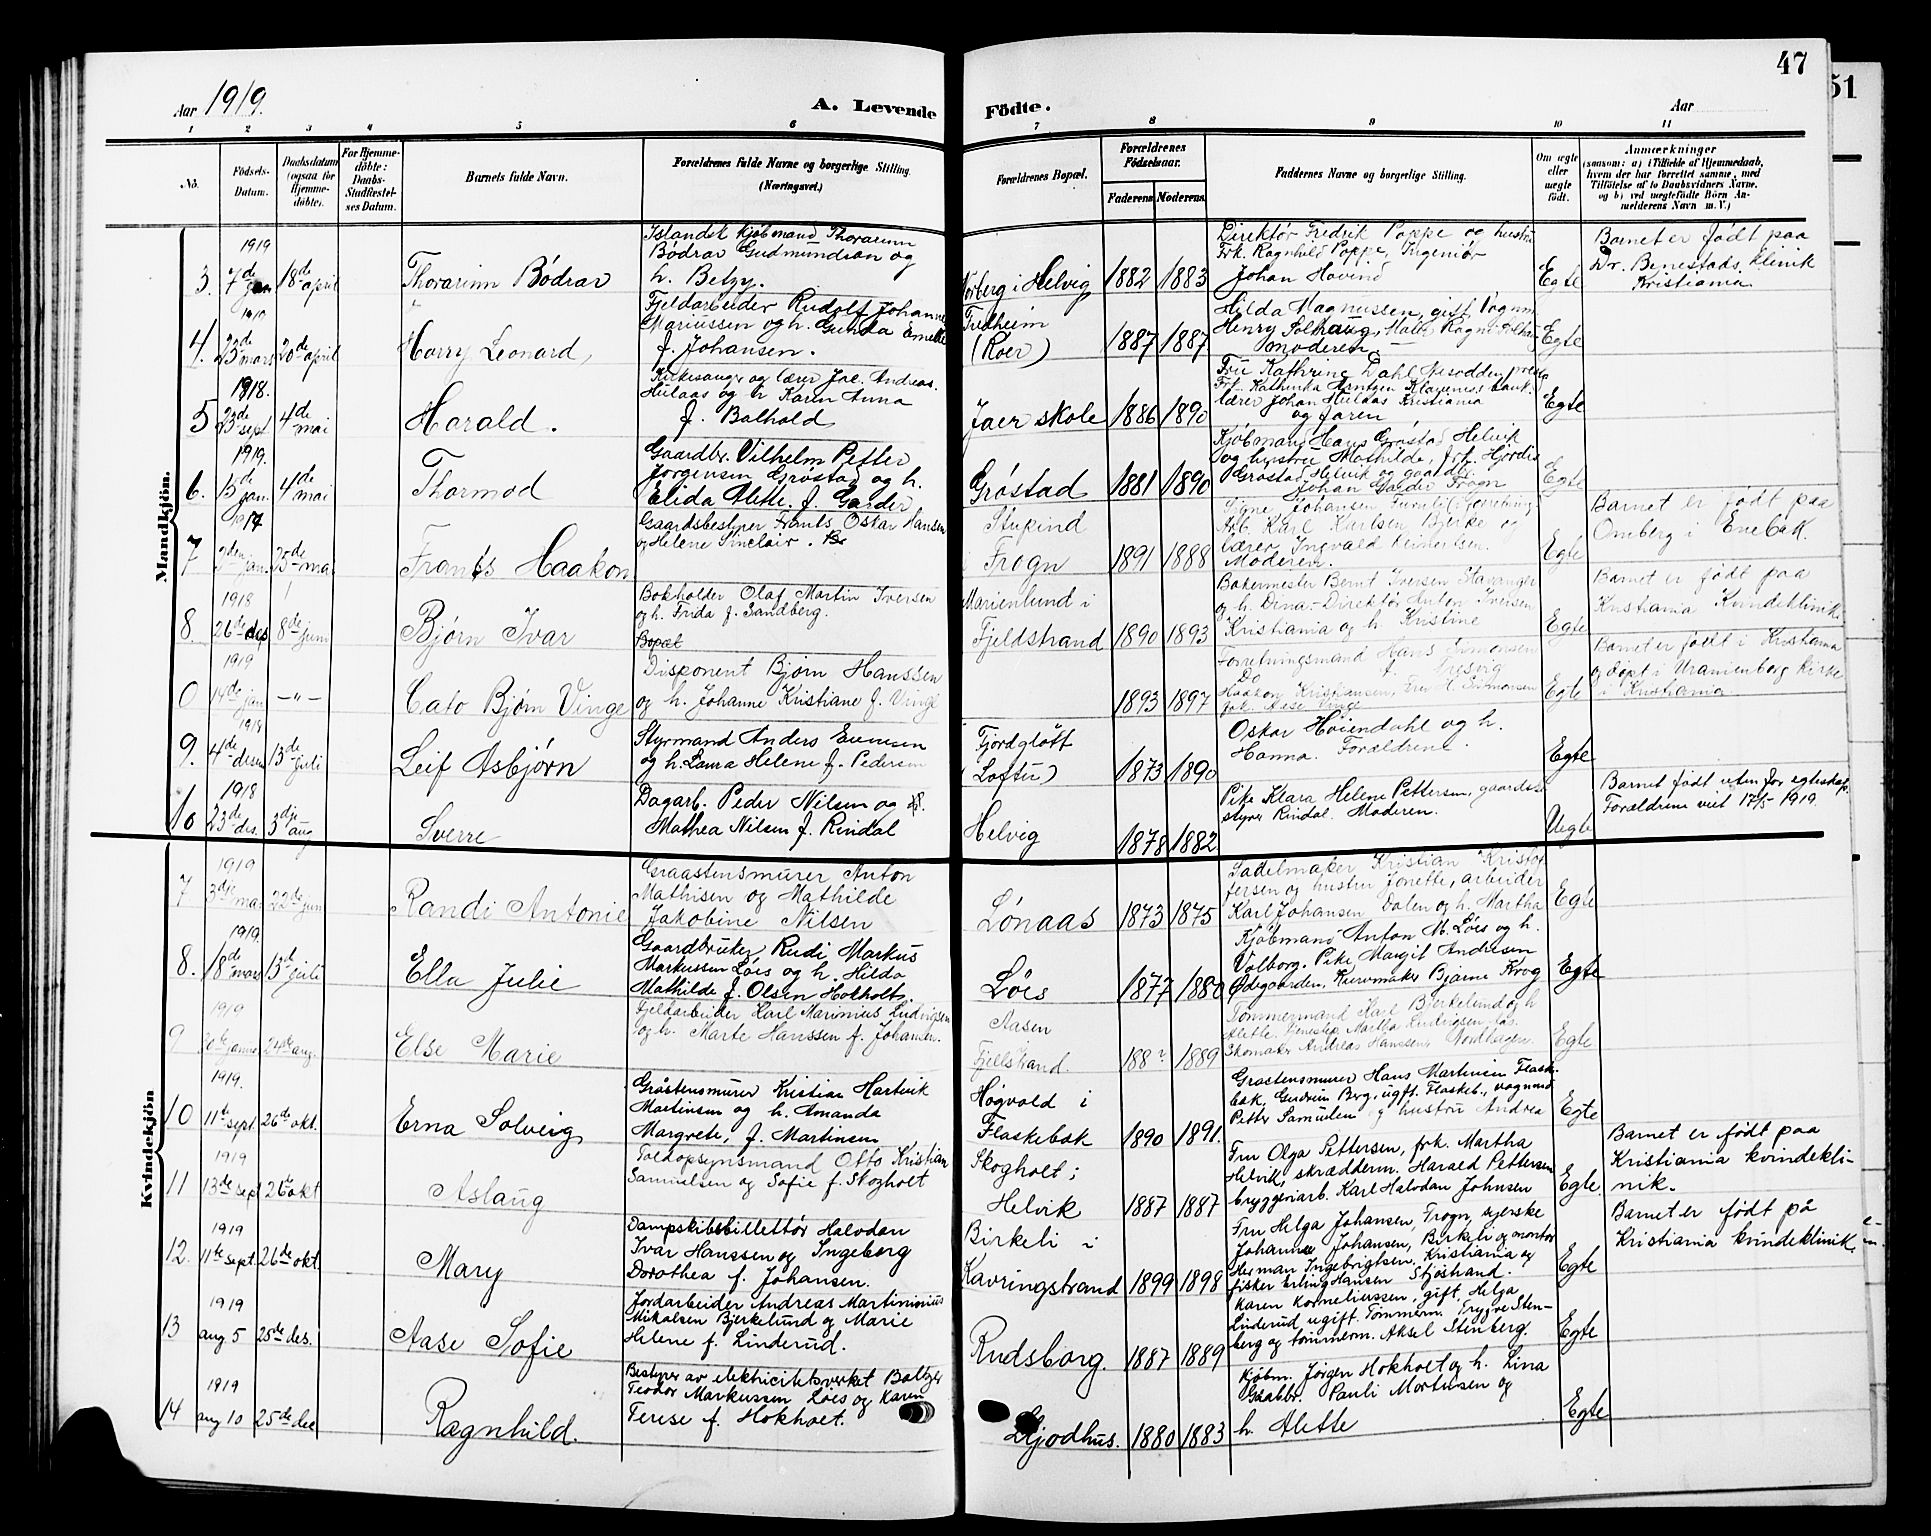 47
51
Aar 1919.
A. Levende Födte.
Aar
1 2 3 4 5 6 7 8 9 10 11
No.
Födsels-
Datum.
Daabsdatum
(ogsaa for
Hjemme-
döbte).
For Hjemme-
döbte:
Daabs-
Stadfæstel-
ses Datum.
Barnets fulde Navn.
Forældrenes fulde Navne og borgerlige Stilling.
(Næringsvei.)
Forældrenes Bopæl.
Forældrenes
Födselsaar.
Faderens Moderens
Faddernes Navne og borgerlige Stilling.
Om ægte
eller
uægte
født.
Anmærkninger
(saasom: a) i Tilfælde af Hjemmedaab,
hvem der har forrettet samme, med
Tilføielse af to Daabsvidners Navne.
og b) ved uægtefödte Börn An-
melderens Navn m. V.)
Mandkjön.
1919
3. 7de jan 18de april
Thorarinn Bødvar
Islandsk Kjøbmand Thorarinn
Bødvar Gudmundson og
h. Betzy.
Norberg i Helvig
1882 1883
Direktør Fredrik Poppe og hustru
Frk. Ragnhild Poppe, Ingeniør
Johan Hovind
Egte
Barnet er født paa
Dr. Benestads klinik
Kristiania
1919
4. 23de mars 20de april
Harry Leonard
Fjeldarbeider Rudolf Johannes
Mariussen og h. Gunda Emelie
f. Johansen.
Fredheim
(Roer)
1887 1887
Hilda Magnussen, gift
Henry Solhaug,
moderen
Egte
1918.
5 23de sept 4de mai
Harald.
Kirkesanger og lærer Joh. Andreas
Hulaas og h Karen Anna
f. Bolhold
Jaer skole
1886 1890
Fru Kathrine Dahl Nesodden
lærer Johan Hulaas Kristiania
og faren
Egte
1919.
6. 15de jan. 4de mai
Thormod
Gaardbr. Vilhelm Petter
Jørgensen Grøstad og h.
Elida Alette f. Garder
Grøstad
1881 1890
Kjøbmand Hans Grøstad Helvik
og hustru Mathilde, frk. Hjørdis
Grøstad Helvik og gaardbr.
Johan Garder Frogn
Egte
1917
7 2den jan. 25de mai
Frants Haakon
Gaardsbestyrer Frants Oskar Hansen
og Helene Sinclair.
Stupind
i Frogn
1891 1888
Signe Johansen
Arb. Karl Karlsen Bjerke og
lærer Ingvald
Moderen.
Egte
Barnet er født paa
Omberg i Enebak.
1918
8. 26de des 8de juni
Bjørn Ivar
Bokholder Olaf Martin Iversen
og h. Frida f. Sandberg.
Bopæl
Marienlund i
Fjeldstrand
1890 1893
Bakermester Bernt Iversen Stavanger
og h. Dina - Direktør Anton Iversen
Kristiania og h. Kristine
Egte
Barnet er født paa
Kristiania Kvindeklinik
1919
0 14de jan -"-
Cato Bjørn Vinge
Disponent Bjørn Hanssen
og h. Johanne Kristiane f. Vinge
1893 1897
Forretningsmand Hans Simonsen
Do
Haakon Kristiansen, Fru M. Simonsen
frk. Aase Vinge
Egte
Barnet er født i Kristiania
og døpt i Uranienborg Kirke
i Kristiania
1918
9. 4de desem 13de juli
Leif Asbjørn
Styrmand Anders Evensen
og h. Laura Helene f. Pedersen
Fjordgløtt
(Loftu)
1873 1890
Oskar Høiendahl og h.
Hanna. Forældrene.
Egte
1918
10 23de des. 3dje aug
Sverre
Dagarb. Peder Nilsen og
Mathea Nilsen f. Rindal
Helvig
1878 1882
Pike Klara Helene Pettersen, gaardsbe-
styrer Rindal. Moderen.
Uegte
Barnet født uten for egteskap.
Forældrene viet 17/5 1919.
Kvindekjön
1919
7 3dje mai 22de juni
Randi Antonie
Graastensmurer Anton
Mathisen og Mathilde
Jakobine Nilsen
Lønaas
1873 1875
Sadelmaker Kristian Kristof-
fersen og hustru Jonette, arbeider
Karl Johansen Dalen og h. Martha
Egte
1919.
8. 18de mars 13de juli
Ella Julie
Gaardbruker Rudi Markus
Markussen Løes og h. Hilda
Mathilde f. Olsen Hokholt.
Løes
1877 1880
Kjøbmand Anton M. Løes og h.
Valborg. Pike Margit Andresen
Ødegaarden, Kurvmaker Bjarne Krog
Egte
1919
9 24de aug.
Else Marie
Fjeldarbeider Karl Marinius Ludvigsen
og h. Marte Hanssen f. Johansen.
Aasen
Fjellstrand.
188? 1889
Tømmermand Karl Bjerkelund og h
Alette, tjenestep. Martha Ludvigsen,
Skomaker Andreas Hanssen, Nordhagen.
Egte
1919.
10 11te sept. 26de okt.
Erna Solveig
Gråstensmurer Kristian Hartvik
Martinsen og h. Amanda
Margrete, f. Martinsen
Høgvold i
Flaskebæk
1890 1891.
Graastensmurer Hans Martinsen Flaske-
bæk, Gudrun Berg, ugift. Flaskeb., vognmd
Petter Samuelsen og hustru Andrea
Egte
1919
11 13de sept 26de okt
Aslaug
Toldopsynsmand Otto Kristian
Samuelsen og Sofie f. Skogholt
Skogholt i
Helvik
1887 1887
Fru Olga Pettersen, frk. Martha
Helvik, skræddern. Harald Pettersen
bryggeriarb. Karl Halvdan Johnsen
Egte.
Barnet er født paa
Kristiania kvindekli-
nik.
1919
12. 11te sept. 26de okt
Mary
Dampskibsbillettør Halvdan
Ivar Hanssen og Ingeborg
Dorothea f. Johansen.
Birkeli i
Kavringstrand
1899 1898
Fru Helga Johansen, Frogn, syerske
Johanne Johansen, Birkeli og montør
Herman Ingebrigtsen, Kristiania og
fisker Erling Hansen Stjøstrand.
Egte
Barnet er født på
Kristiania kvindeklinik.
1919
13 aug 5 25de des.
Aase Sofie
Jordarbeider Andreas Martininius
Mikalsen Bjerkelund og Marie
Helene f. Linderud.
Rudsborg.
1887 1889
Karen Korneliussen, gift, Helga
Linderud ugift. Tømmerm. Trygve Sten-
berg og tømmerm. Aksel Stenberg.
Egte
1919
14 aug 10 25de dec
Ragnhild.
Bestyrer av elektricitetsverket Baltzer
Teodor Markussen Løes og Karen
Terese f. Hokholt.
Skjodhus.
1880 1883
Kjøbm. Jørgen Hokholt og h. Lina
Gaardbr. Pauli Mortensen og
h. Alette
Egte